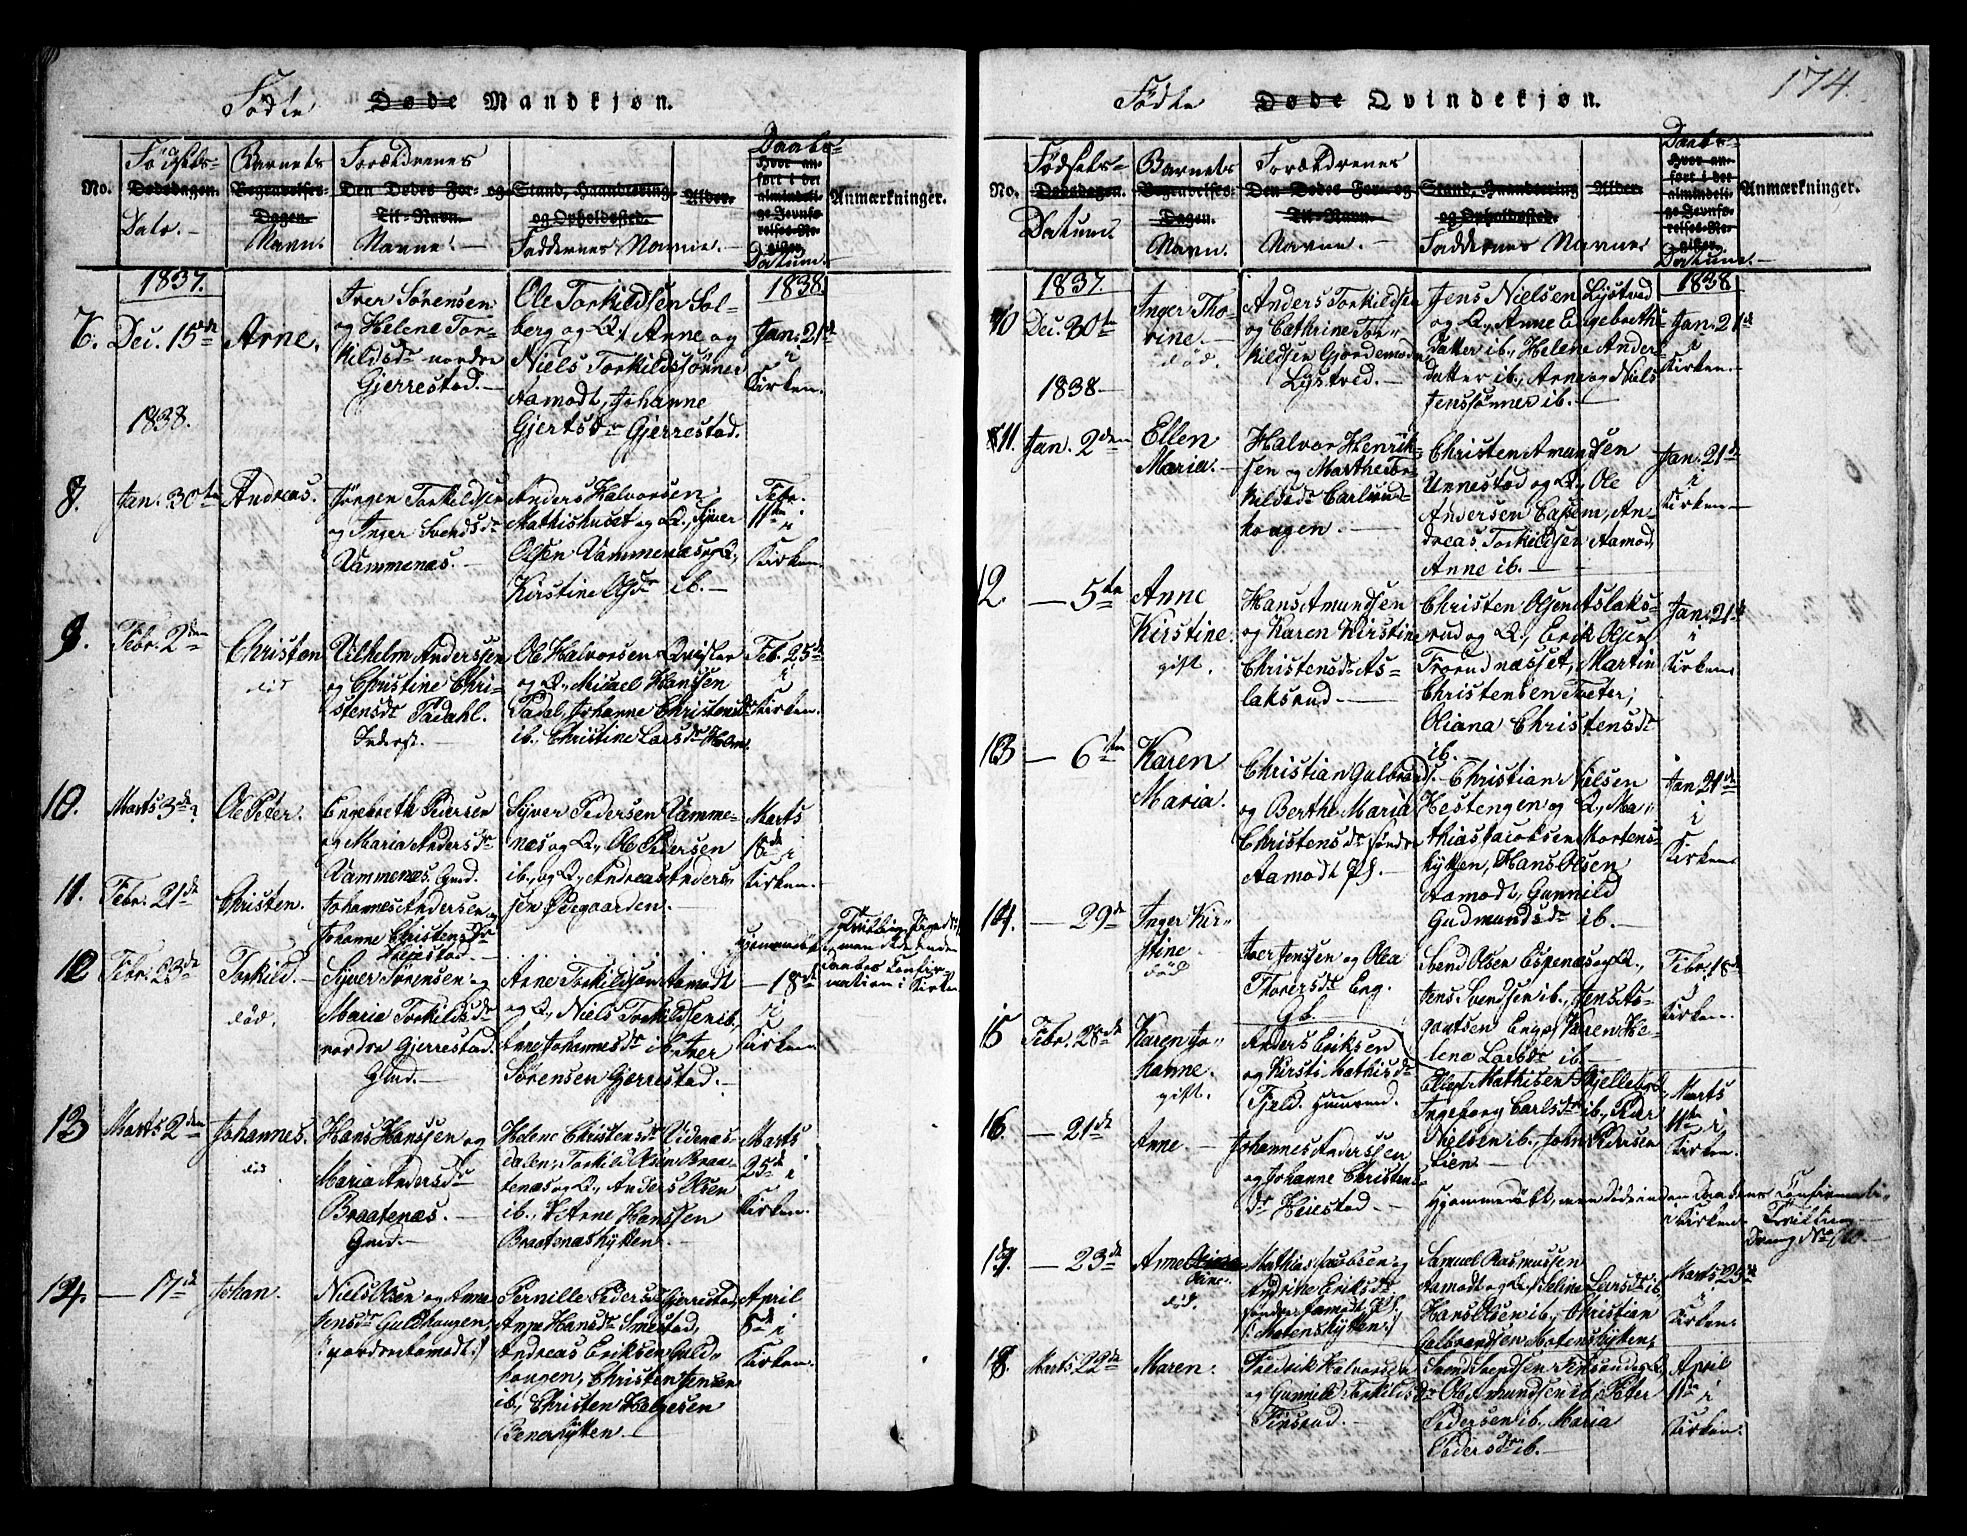 Fødte Døde Mandkjøn.
No.
Fødsels-
Dødsdagen.
Dato.
Barnets
Begravelses-
Dagen.
Navn.
Forældrenes
Den Dødes For- og
Til-Navn.
Navne.
Stand, Haandtering
og Opholdssted.
Faddernes Navne.
Alder.
Daabs-
Hvor an-
ført i det
almindeli-
ge Jevnfø-
relses-Re-
gister.
Datum.
Anmærkninger.
1837.
7. Dec. 15de
Arne.
Iver Sørensen
og Helene Tor-
kildsdr nordre
Gjerrestad.
Ole Torkildsen Sol-
berg og Q., Anne og
Niels Torkildssønner
Aamodt, Johanne
Gjertsdr Gjerrestad.
1838.
Jan. 21de
i
Kirken.
1838.
8. Jan. 30te
Andreas.
Jørgen Torkildsen
og Inger Svendsdr
Vammenæs.
Anders Halvorsen
Mathishuset og Q., Syver
Olsen Vammenæs og Q.,
Kirstine Olsdr ib.
Febr.
11te i
Kirken.
9. Febr. 2den
Christen
død
Vilhelm Anderssen
og Christine Chri-
stensdr Padahl.
Inderst.
Ole Halvorsen Qvisler
og Q., Micael Hanssen
Padal, Johanne Christensdr
ib., Christine Larsdr Holm
Feb. 25de
i
Kirken.
10. Marts 3de
Ole Peter.
Engebreth Pedersen
og Maria Andersdr
Vammenæs. Gmd.
Syver Pedersen Vamme-
næs og Q., Ole Pedersen
ib., og Q., Andreas Anders-
sen Øiegaarden.
Marts
18de i
Kirken.
11. Febr. 21de
Christen.
Johannes Andersen og
Johanne Christensdr
Heiestad.
Hjemmedøbt
men døde inden
Daabens Confir-
mation i Kirken
12 Febr. 23de
Torkild.
død.
Syver Sørensen og
Maria Torkildsdr
nordre Gjerrestad.
Gmd.
Arne Torkildsøn Aamodt
og Q., Niels Torkildsen ib.
Anne Johannesdr ib. Iver
Sørensen Gjerrestad.
— 18de
i
Kirken.
13 Marts 2den
Johannes.
død
Hans Hanssen og
Maria Andersdr
Braatenæs.
Gmd.
Helene Christensdr Videnæs-
dalen, Torkild Olsen Braa-
tenæs og Q., Anders Olsen
ib., Arne Hanssen
Braatenæshytten.
Marts
25de i
Kirken.
14. — 17de
Johan.
Niels Olsen og Anne
Jensdr Guldhaugen
(: nordre Aamodt :)
Pernille Pedersdr Gjerrestad,
Anne Hansdr Smestad,
Andreas Eriksen Guld-
haugen, Christen Jensen
ib., Christen Halvesen
Benerhytten.
April
8de i
Kirken.
174.
Fødte Døde Qvindekjøn.
No.
Fødsels-
Dødsdagen.
Datum.
Barnets
Begravelses-
Dagen.
Navn.
Forældrenes
Den Dødes For- og
Til-Navn.
Navne.
Stand, Haandtering
og Opholdssted.
Faddernes Navne
Alder.
Daabs-
Hvor an-
ført i det
almindeli-
ge Jevnfø-
relses-Re-
gister.
Datum.
Anmærkninger.
1837.
10 Dec. 30te
Inger Tho-
rine.
død.
Anders Torkildsen
og Cathrine Tor-
kildsen Gjordemoder
Lystved.
Jens Nielsen Lystved
og Q., Anne Engebreths-
datter ib., Helene Anders-
datter ib., Arne og Niels
Jenssønner ib.
1838
Jan. 21de
i
Kirken.
1838
11. Jan. 2den
Ellen
Maria.
Halvor Henrik-
sen og Marthe Tor-
kildsdr Carlund-
haugen.
Christen Amundsen
Unnestad og Q., Ole
Andersen Eassem, An-
dreas Torkildsen Aamod,
Anne ib.
Jan. 21de
i
Kirken
12. — 5te
Anne
Kirstine.
gift.
Hans Amundsen
og Karen Kirstine
Christensdr As-
laksrud.
Christen Olsen Aslaks-
rud og Q., Erik Olsen
Froerud næsset, Martin
Christensen Tveter,
Oliana Christensdr
ib.
Jan. 21de
i
Kirken.
13 — 6te
Karen
Maria.
Christian Gulbrands.
og Berthe Maria
Christensdr søndre
Aamodt Pl.
Christian Nielsen
Hestengen og Q., Ma-
thias Jacobsen Mortens-
hytten, Hans Olsen
Aamodt, Gunnild
Gudmundsdr ib.
Jan. 21de
i
Kirken.
14. — 29de
Inger Kir-
stine
død
Iver Jensen og Olea
Thorersdr Eng.
Gb.
Svend Olsen Espenæs og Q.,
Jens Svendsen ib., Jens As-
gautsen Enge, Karen He-
lena Larsdr ib.
Febr. 18de
i
Kirken.
15 Febr. 28de
Karen Jo-
hanne.
gift.
Anders Eriksen
og Kirsti Mathisdr
Fjeld.
Ellef Mathisen Kjelleberg
Ingeborg Carlsdr ib., Peder
Nielsen ib., John Pedersen
Lien
Marts
11te i
Kirken.
16. — 21de
Anne.
Johannes Anderssen
og Johanne Christens-
dr Heiestad.
Hjemmedøbt, men døde inden Daabens Confirmati-
i Kirken.
17. — 23de
Anne
død.
Mathias Jacobsen og
Andrine Eriksdr
søndre Aamodt Pl.
(: Motenshytten :)
Samuel Rasmussen
Aamodt og Q., Seline Larsdr ib.
Hans Olsen ib., Christian
Gulbrandsen Motenshytten,
Marts 25de
i
Kirken.
18. Marts 22de
Maren.
Fredrik Halvorsen
og Gunnild Torkildsdr
Finstad.
Svend Svendsen Finstad og Q.,
Ole Amundsen ib., Peter
Pedersen ib., Maria
Pedersdr ib.
April
11te i
Kirken.